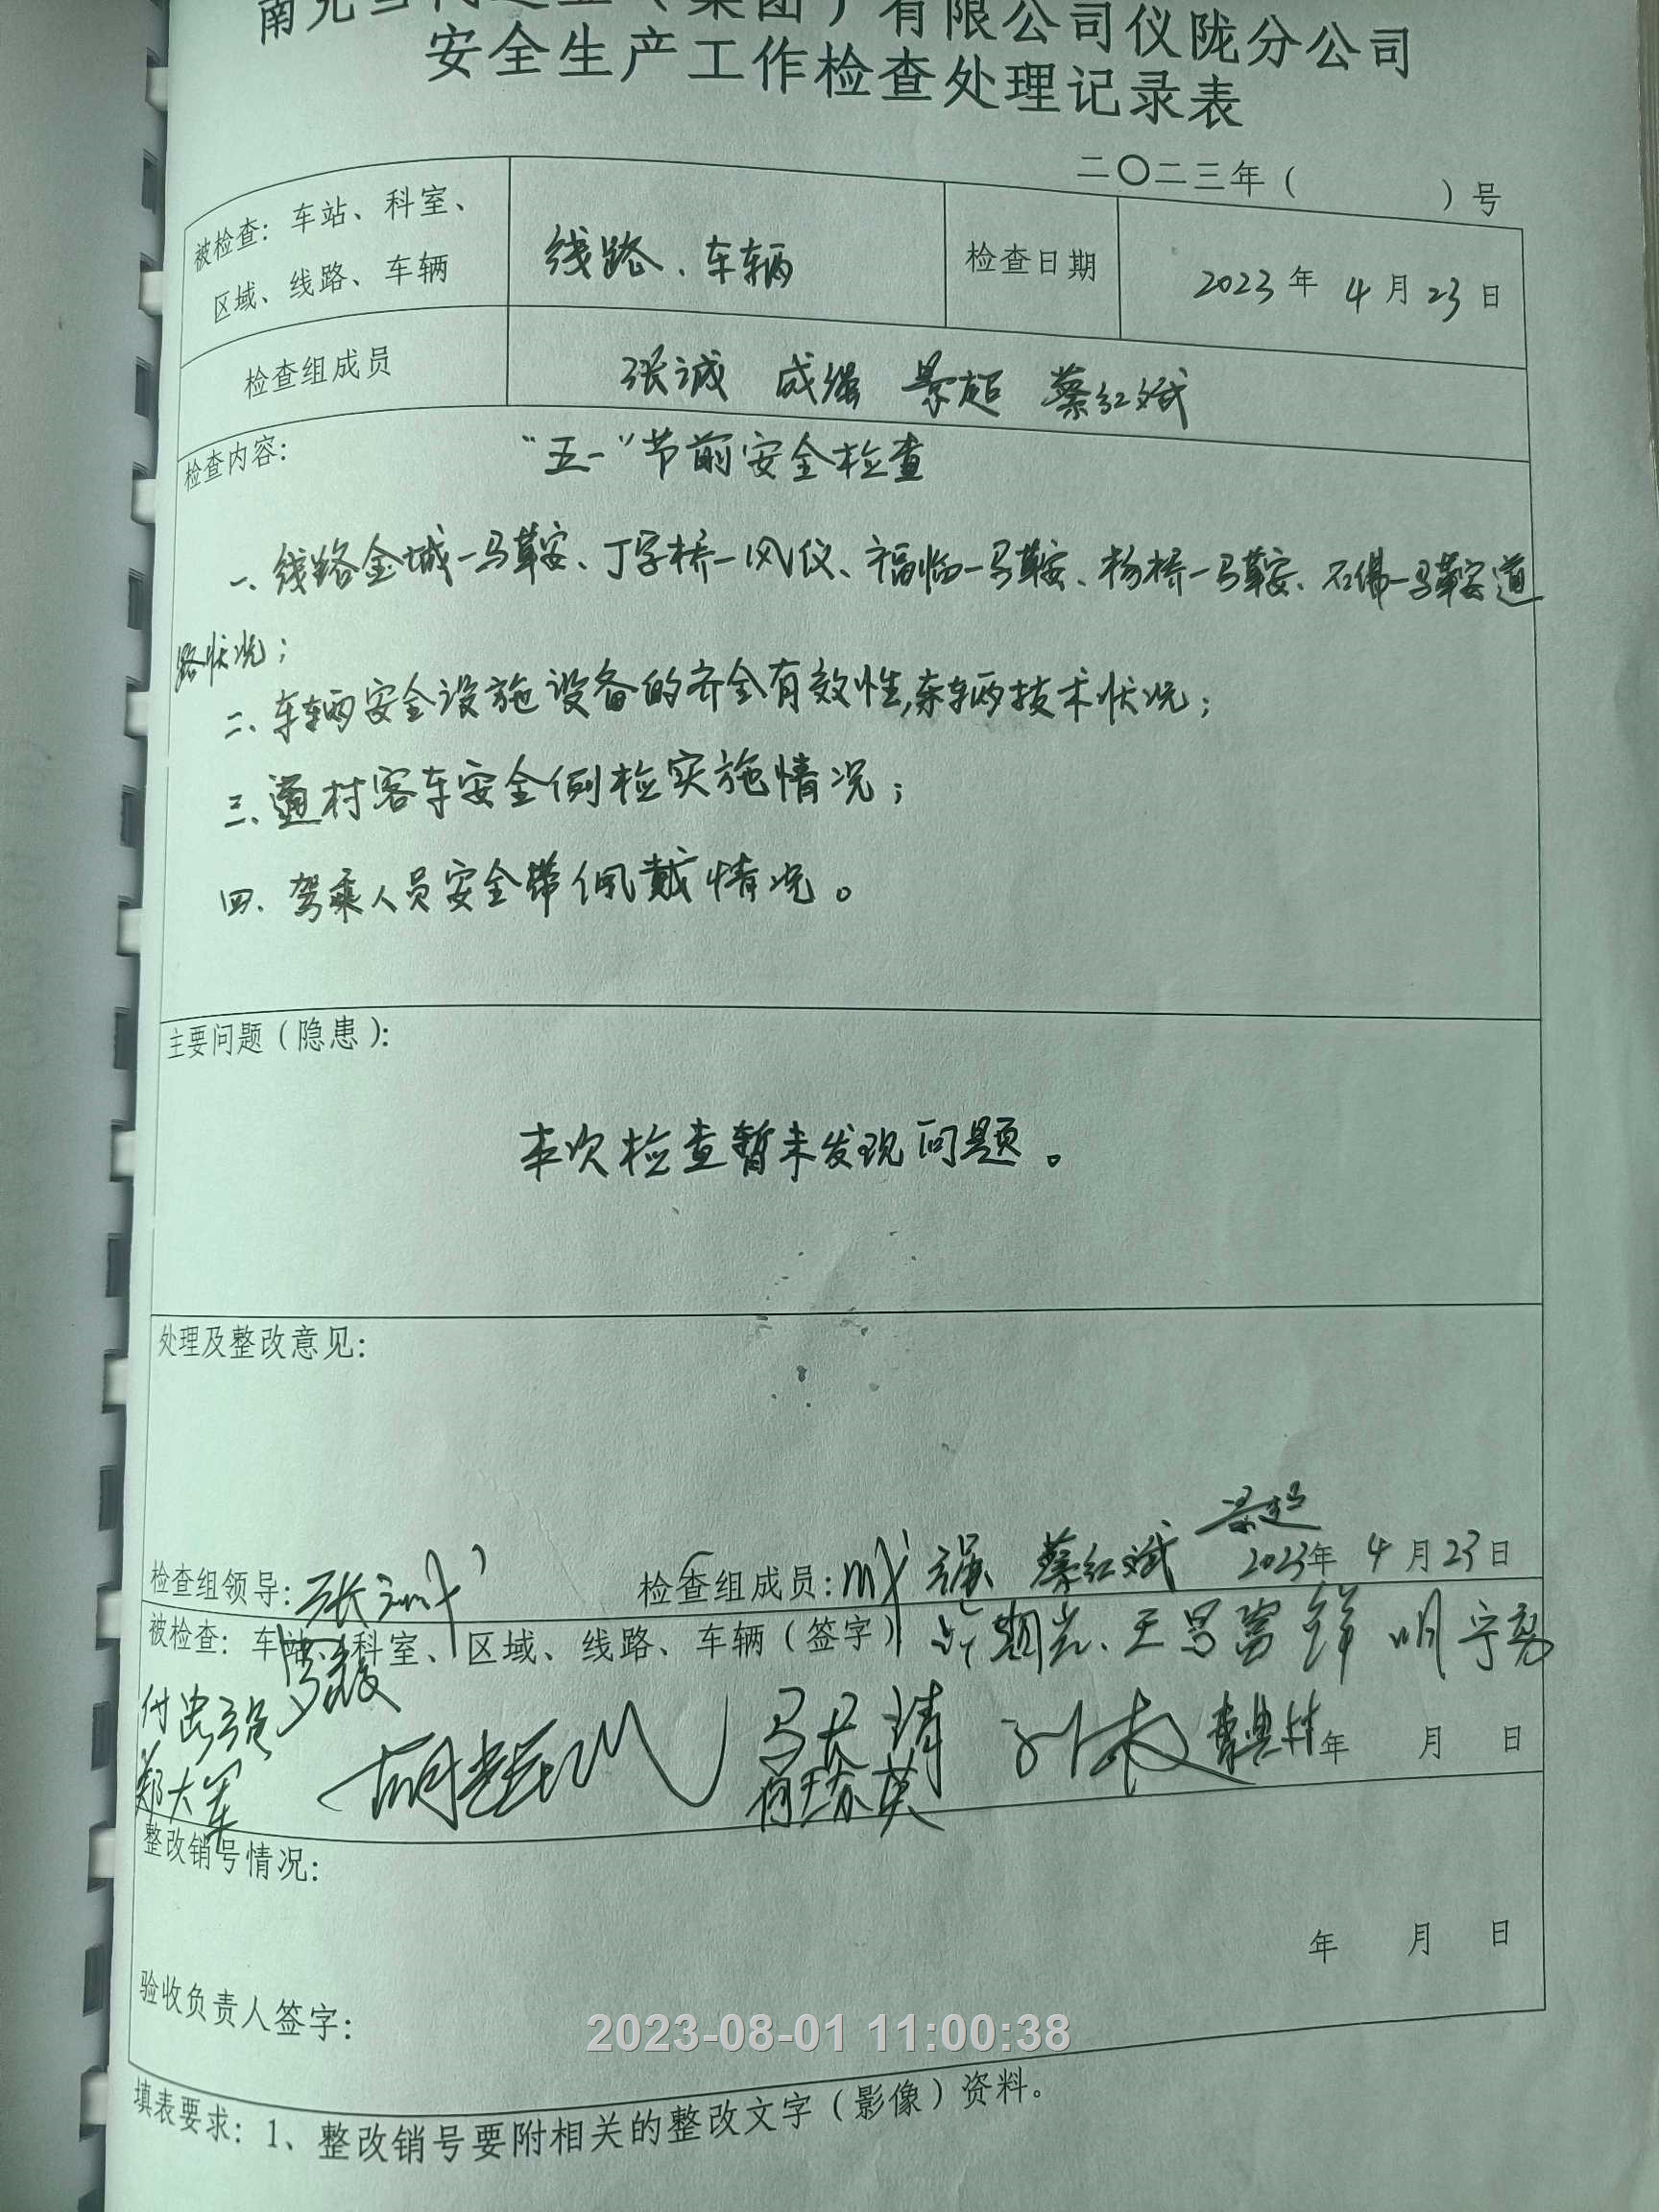 南充当代运业（集团）有限公司仪陇分公司
安全生产工作检查处理记录表
二〇二三年（ ）号
被检查：车站、科室、区域、线路、车辆
线路、车辆
检查日期
2023年4月23日
检查组成员
张诚 成强 景超 蔡红斌
检查内容：
“五一”节前安全检查
一、线路金城—马鞍、丁字桥—凤仪、福临—马鞍、杨桥—马鞍、石佛—马鞍道
路状况；
二、车辆安全设施设备的齐全有效性，车辆技术状况；
三、通村客车安全例检实施情况；
四、驾乘人员安全带佩戴情况。
主要问题（隐患）：
本次检查暂未发现问题。
处理及整改意见：
景超
检查组领导：张诚 检查组成员：成强 蔡红斌 2023年4月23日
被检查：车站、科室、区域、线路、车辆（签字）
郑大军
年 月 日
整改销号情况：
年 月 日
验收负责人签字：
2023-08-01 11:00:38
填表要求：1、整改销号要附相关的整改文字（影像）资料。